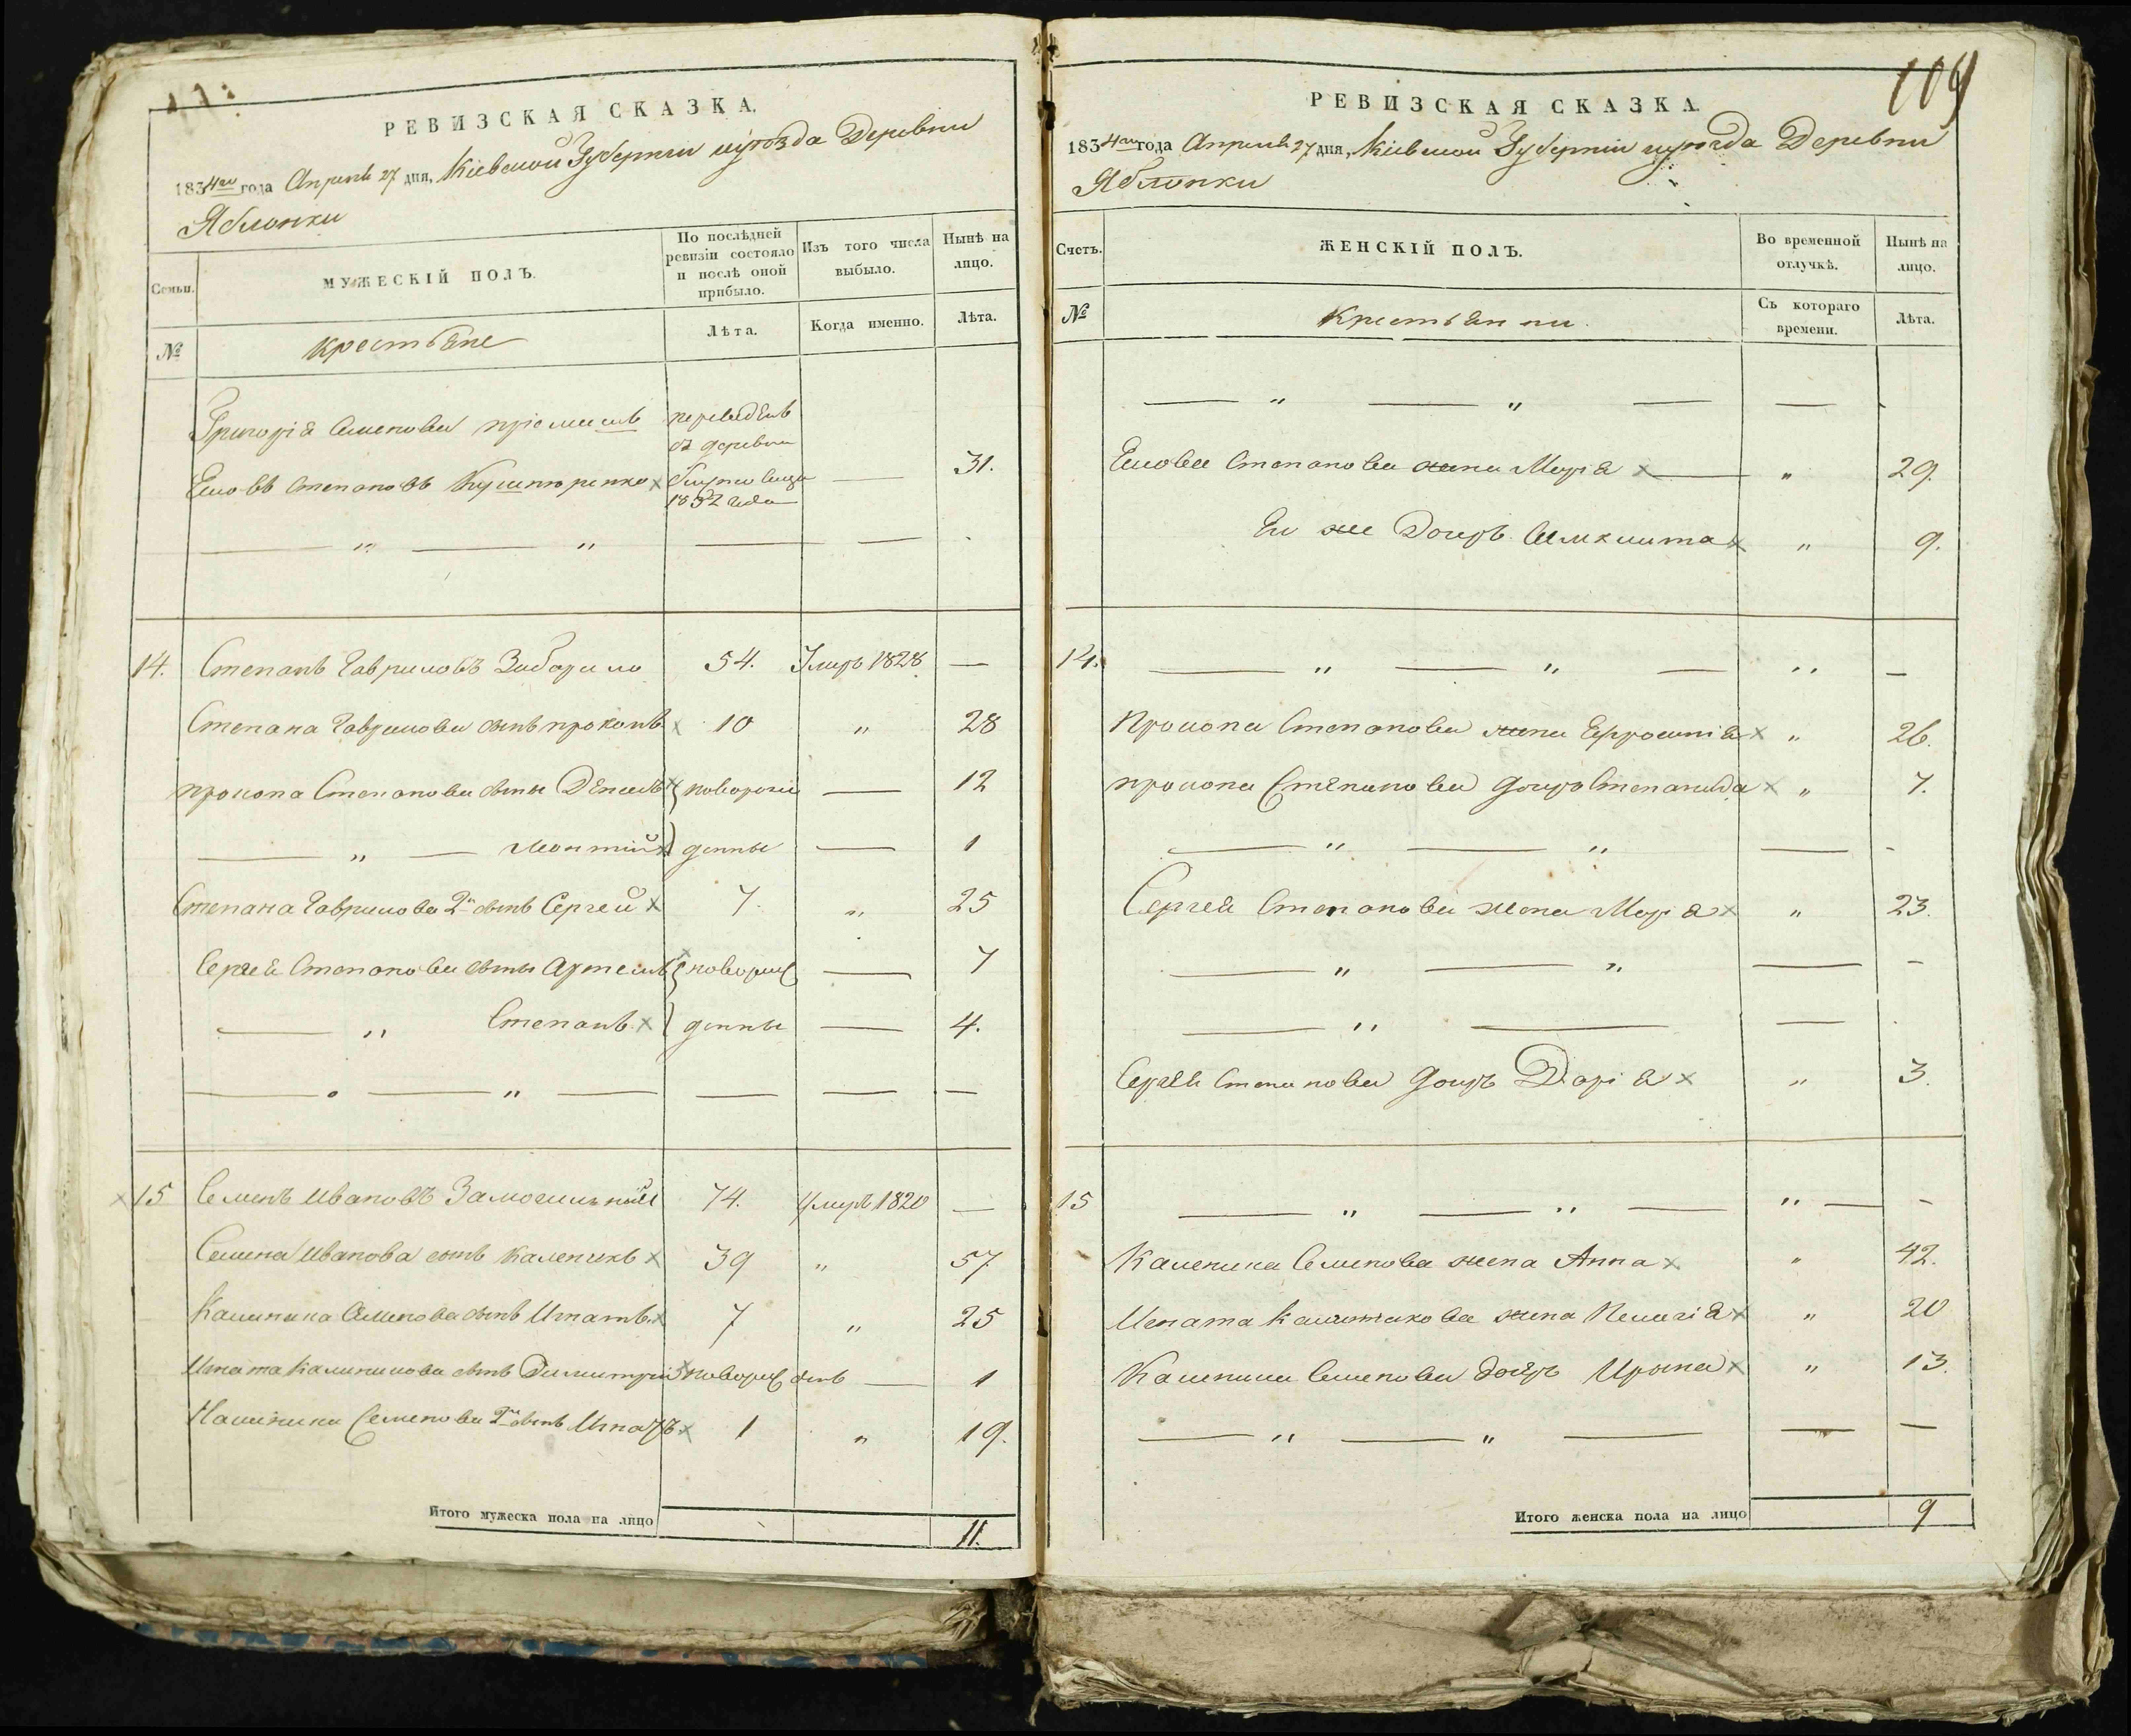 РЕВИЗСКАЯ СКАЗКА.
1834го года Апреля 27 дня, Кіевской Губерніи и уѣзда Деревни
Яблонки
Семьи.
МУЖЕСКІЙ ПОЛЪ.
По послѣдней ревизіи состояло и послѣ оной прибыло.
Изъ того числа выбыло.
Нынѣ на лицо.
№
крестьяне
Лѣта.
Когда именно.
Лѣта.
Григорія Семенова
переведенъ
съ деревни
Степановъ
31.
1832 года
14. Степанъ Гавриловъ 54. Умеръ 1828 —
Степана Гаврилова сынъ прокопъ 10 " 28
прокопа Степанова сыны Денисъ новорож — 12
— " — Леонтій денны — 1
Степана Гаврилова 2й сынъ Сергей 7. " 25
Сергея Степанова сыны Артемъ новорож — 7
— " Степанъ денны — 4.
15 Семенъ Ивановъ Замогильный 74. Умеръ 1820 —
Семена Иванова сынъ Каленикъ 39 " 57
Каленика Семенова сынъ Игнатъ 7 " 25
Игната Каленикова сынъ Димитрій новорожденъ — 1
Каленика Семенова 2й сынъ 1 " 19.
Итого мужеска пола на лицо 11.
109
РЕВИЗСКАЯ СКАЗКА
1834го года Апреля 27 дня, Кіевской Губерніи и уѣзда Деревни
Яблонки
Счетъ.
ЖЕНСКІЙ ПОЛЪ.
Во временной отлучкѣ.
Нынѣ на лицо.
№
Крестьянки.
Съ котораго времени.
Лѣта.
Степанова жена Марія " 29.
Ея же Дочерь " 9.
14. — " — " — " —
Прокопа Степанова жена Ефросинія " 26.
прокопа Степанова дочерь Степанида " 7.
Сергея Степанова жена Марія " 23.
Сергея Степанова дочерь Дарія " 3.
15 — " — " — " —
Каленика Семенова жена Анна " 42.
Игната Каленикова жена Пелагія " 20
Каленика Семенова дочерь Ирына " 13.
Итого женска пола на лицо 9